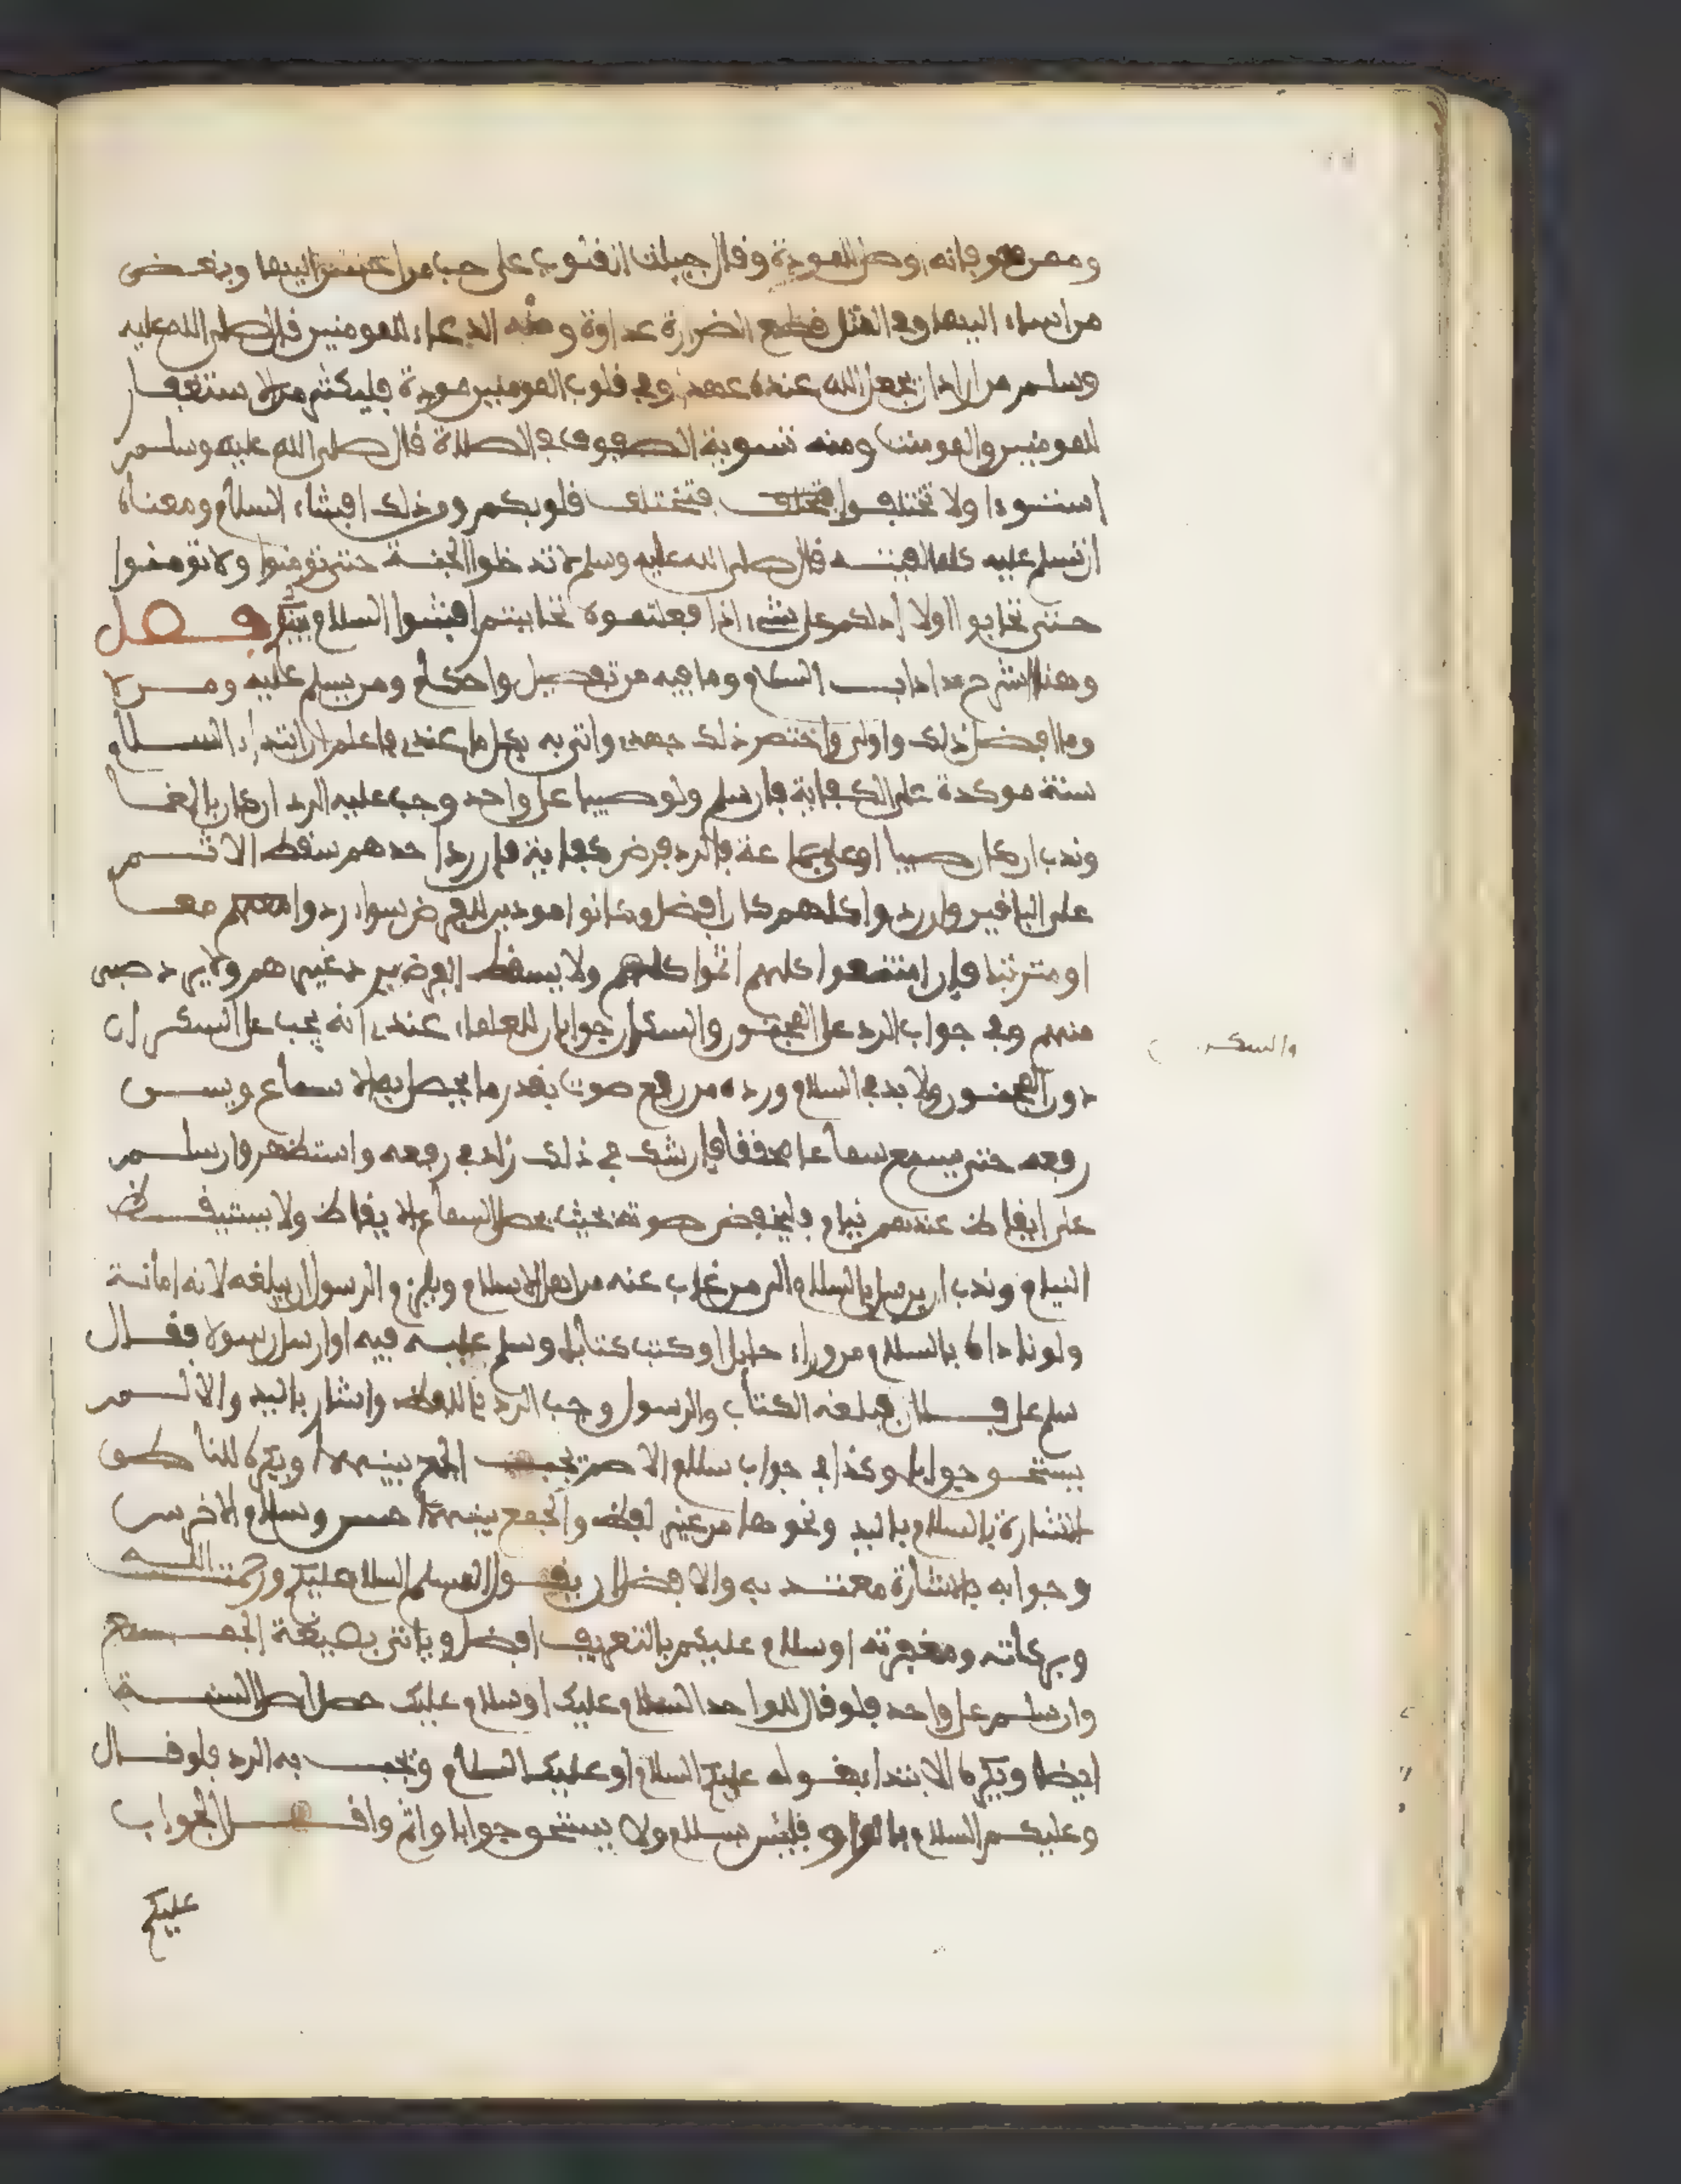 وممن هو فإنه اوصل للمودة وقال جبلت القلوب على حب من احسن اليها وبغض
من اساء اليها وفي المثل قطع الضرارة عداوة ومنه الدعاء للمومنين قال صلى الله عليه
وسلم من اراد ان يجعل الله عنده عهدا وفي قلوب المومنين مودة فليكثر من الاستغفار
للمومنين والمومنت ومنه تسوية الصفوف في الصلاة قال صلى الله عليه وسلم
استووا ولا تختلفوا فتختلف قلوبكم ومن ذلك افشاء السلام ومعناه
ان تسلم عليه كلما لقيته قال صلى الله عليه وسلم لا تدخلوا الجنة حتى تومنوا ولا تومنوا
حتى تحابوا اولا ادلكم على شيء اذا فعلتموه تحاببتم افشوا السلام بينكم فصل
وهنا اشرح ءاداب السلام وما فيه من تفصيل واحكام ومن يسلم عليه ومن لا
وما افضل ذلك واولى واختصر ذلك جهدي واتي به بكل ما عندي فاعلم ان ابتداء السلام
سنة موكدة على الكفاية فان سلم ولو صبيا على واحد وجب عليه الرد ان كان بالغا
وندب ان كان صبيا او على جماعة فالرد فرض كفاية فان رد احدهم سقط الاثم
على الباقين وان ردوا كلهم كان افضل وكانوا مودين للفرض سواء ردوا معا
او مترتبا فإن امتنعوا كلهم اثموا كلهم ولا يسقط الفرض برد غيرهم ولا برد صبي
منهم وفي جواب الرد على المجنون والسكران جوابان للعلماء عندي انه يجب على السكران
دون المجنون ولا بد في السلام ورده من رفع صوت بقدر ما يحصل به الاسماع ويسن
رفعه حتى يسمع سماعا محققا فإن شك في ذلك زاد في رفعه واستظهر وان سلم
على ايقاظ عندهم نيام فليخفض صوته بحيث يحصل اسماع الايقاظ ولا يستيقظ
النيام وندب ان يرسل بالسلام الى من غاب عنه من اهل الاسلام ويلزم الرسول ان يبلغه لانه امانة
ولو ناداه بالسلام من وراء حايل او كتب كتابا وسلم عليه فيه او ارسل رسولا فقال
سلم على فلان فبلغه الكتاب والرسول وجب الرد باللفظ واشار باليد والا لم
يستحق جوابا وكذا في جواب سلام الاصم يجب الجمع بينهما ويكره للناطق
الاشارة بالسلام باليد ونحوها من غير لفظ والجمع بينهما حسن وسلام الاخرس
وجوابه بالاشارة معتد به والافضل ان يقول المسلم السلام عليكم ورحمت الله
وبركاته ومغفرته او سلام عليكم بالتعريف افضل وياتي بصيغة الجمع
وان سلم على واحد فلو قال للواحد السلام عليك او سلام عليك حصل اصل السنة
ايضا ويكره الابتداء بقوله عليكم السلام او عليك السلام ويجب به الرد فلو قال
وعليكم السلام بالواو فليس بسلام ولا يستحق جوابا واثم واقل الجواب
عليكم
والسكر